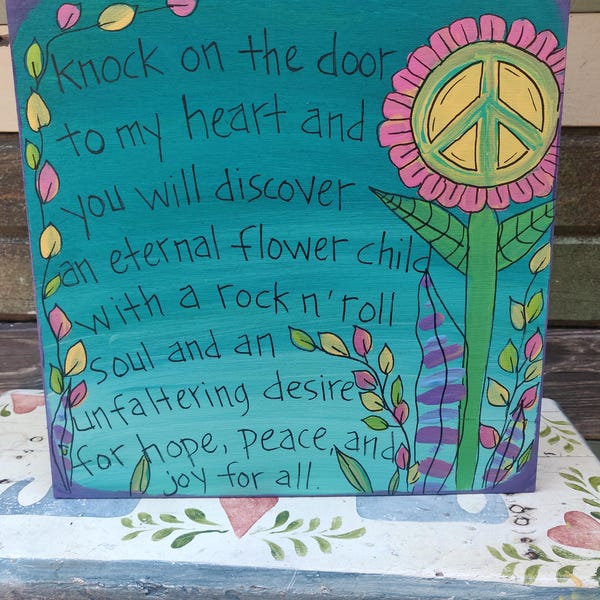 knock on the door
to my heart and
you will discover
an eternal flower child
with a rock n' roll
soul and an
unfaltering desire
for hope, peace, and
joy for all.